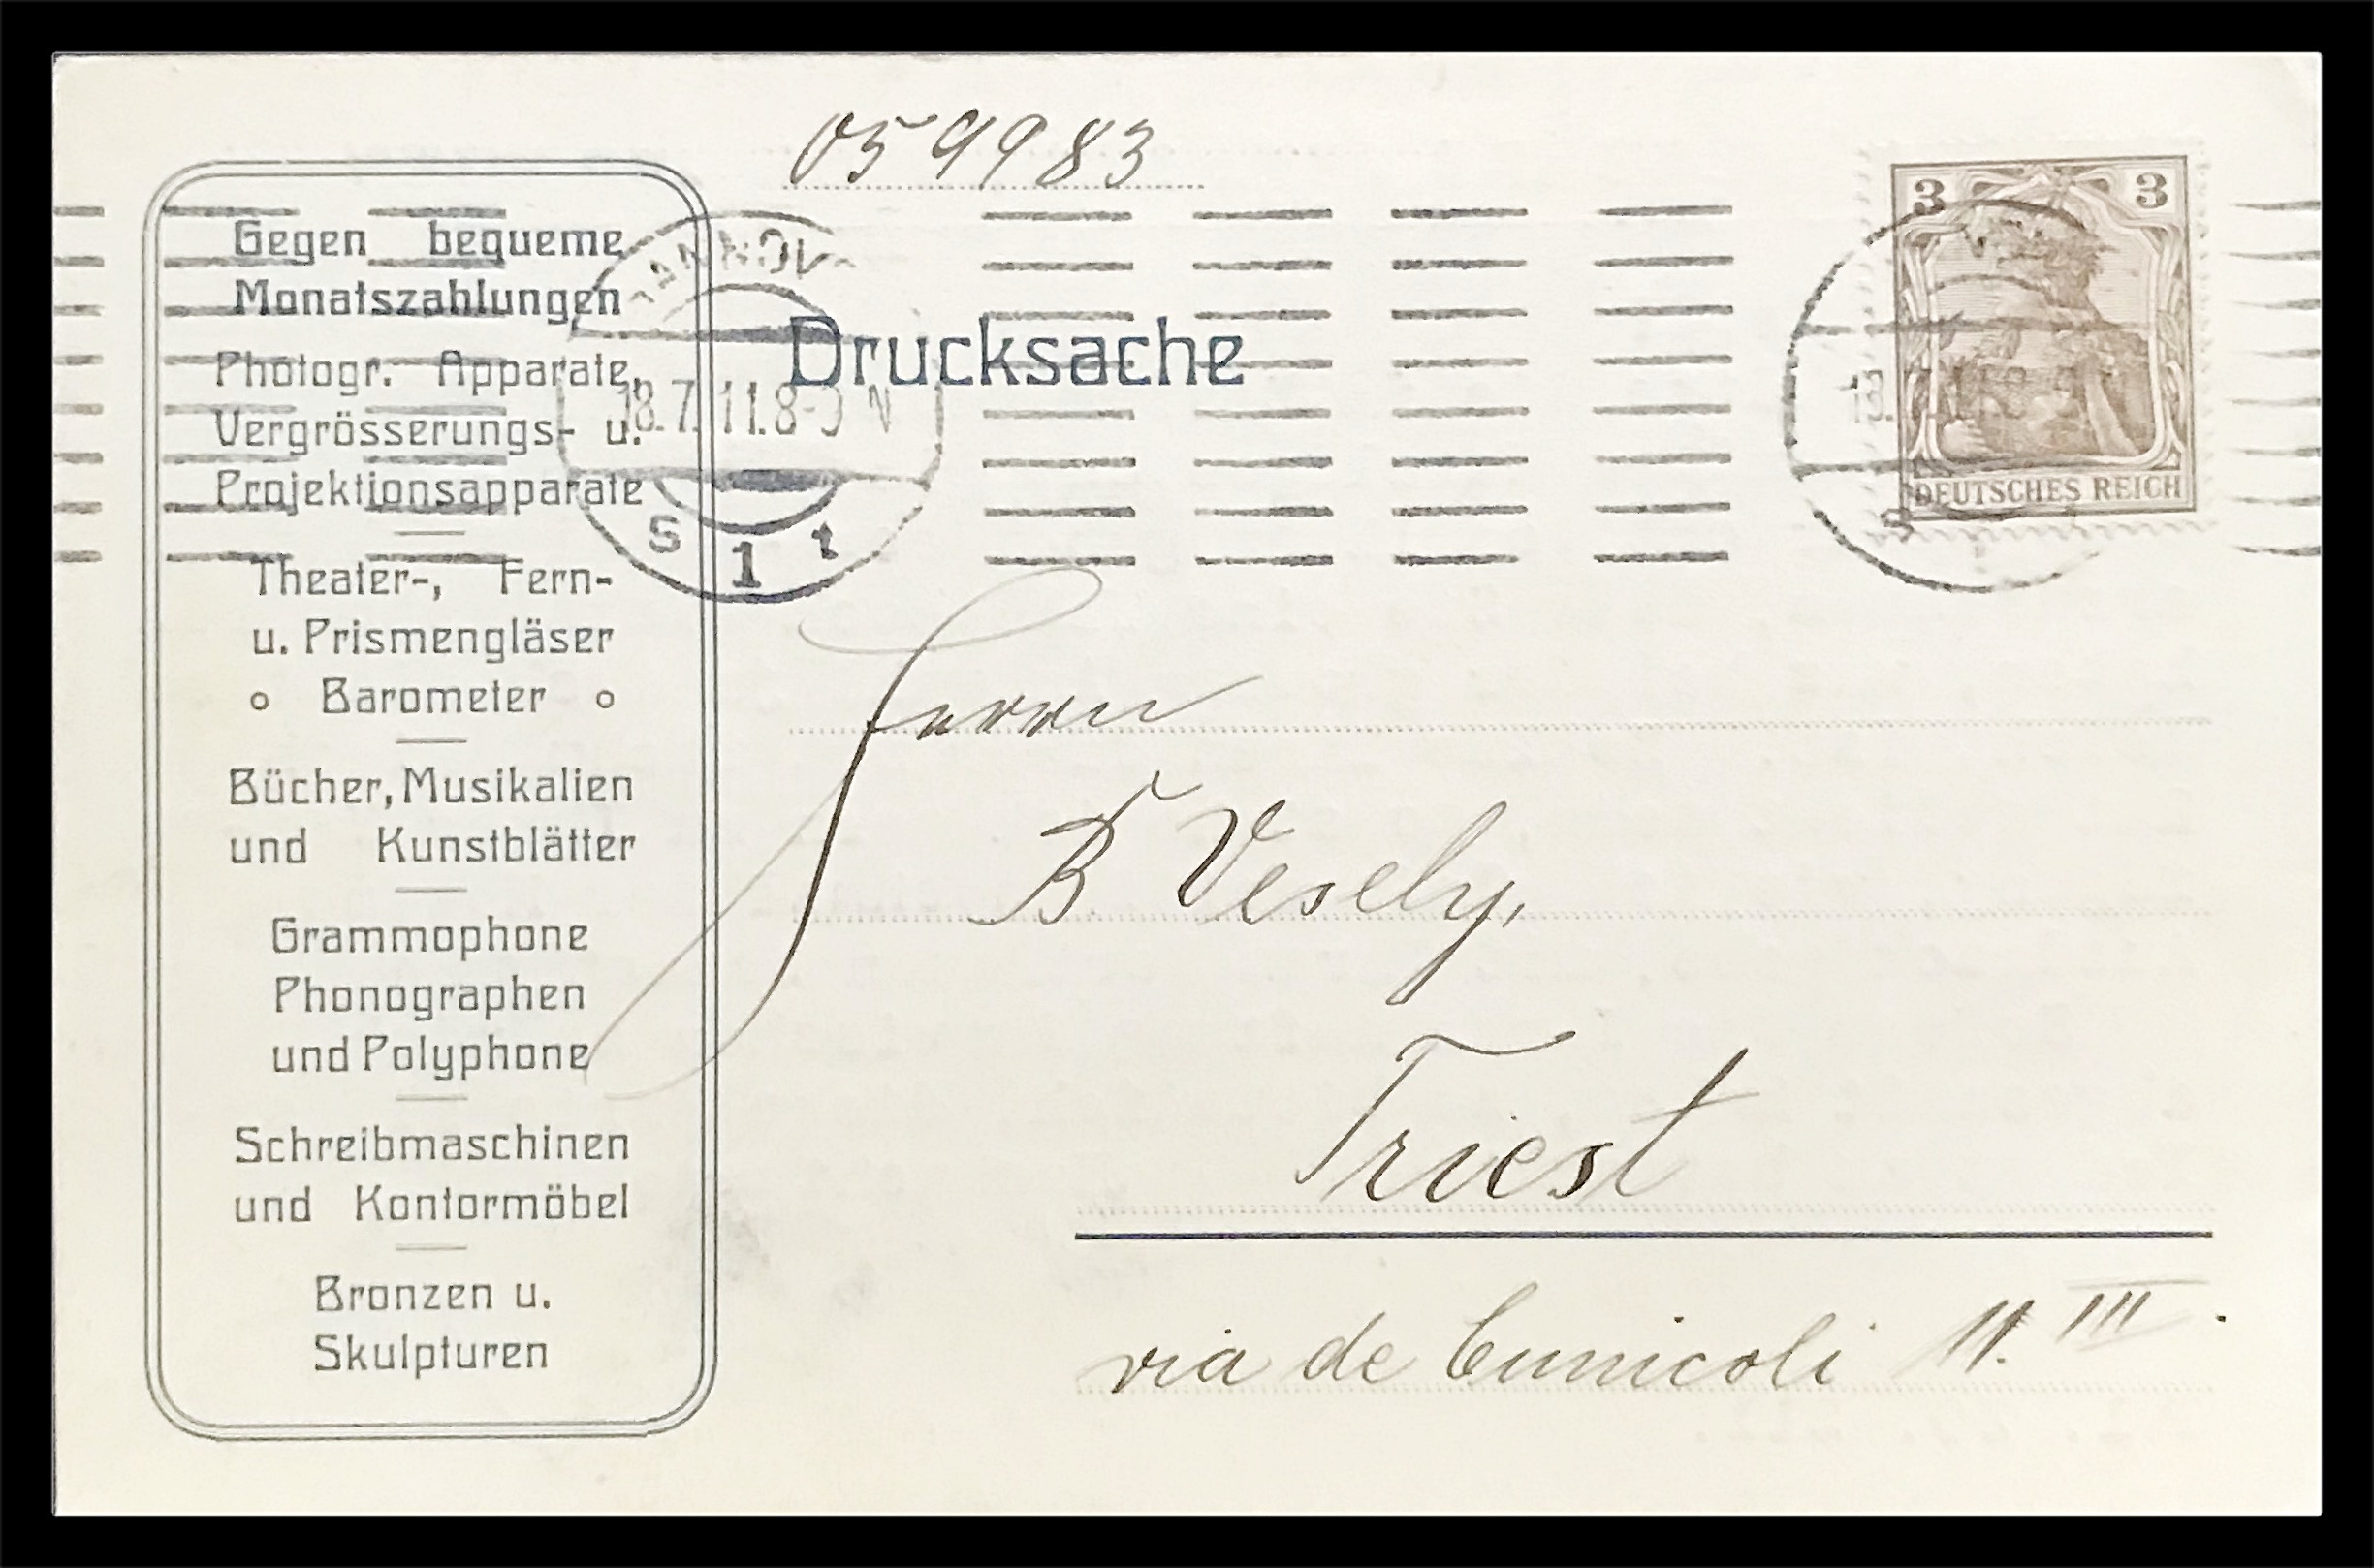 059983
Gegen bequeme
Monatszahlungen
Photogr. Apparate,
Vergrösserungs- u.
Projektionsapparate
Theater-, Fern-
u. Prismengläser
Barometer
Bücher, Musikalien
und Kunstblätter
Grammophone
Phonographen
und Polyphone
Schreibmaschinen
und Kontormöbel
Bronzen u.
Skulpturen
HANNOV
18.7.11.8-9 N
S 1 t
Drucksache
3 3
DEUTSCHES REICH
18.
S
Herrn
B Vesely,
Triest
via de Cunicoli 11. III.